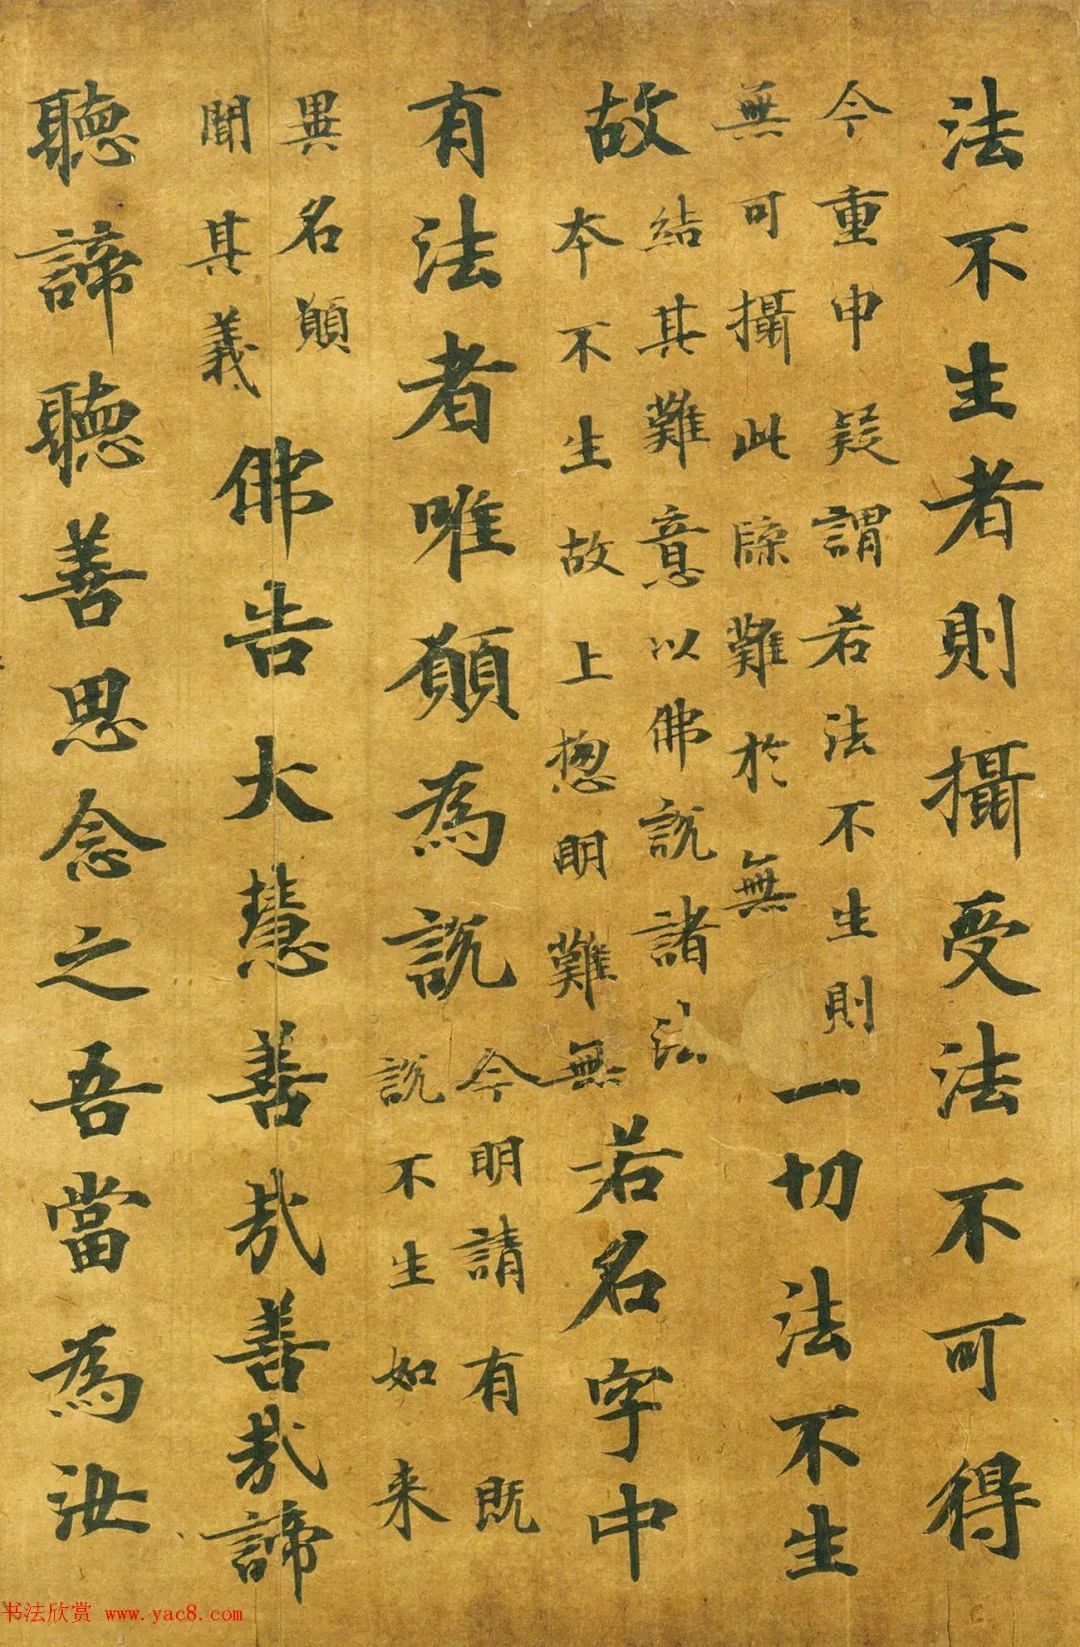 法不生者則攝受法不可得
今重申疑謂若法不生則
無可攝此牒難於無
一切法不生
故
結其難意以佛說諸法
本不生故上揔明難無
若名字中
有法者唯願為說
今明請有既
說不生如来
異名願
聞其義
佛告大慧善哉善哉諦
聽諦聽善思念之吾當為汝
书法欣赏 www.yac8.com